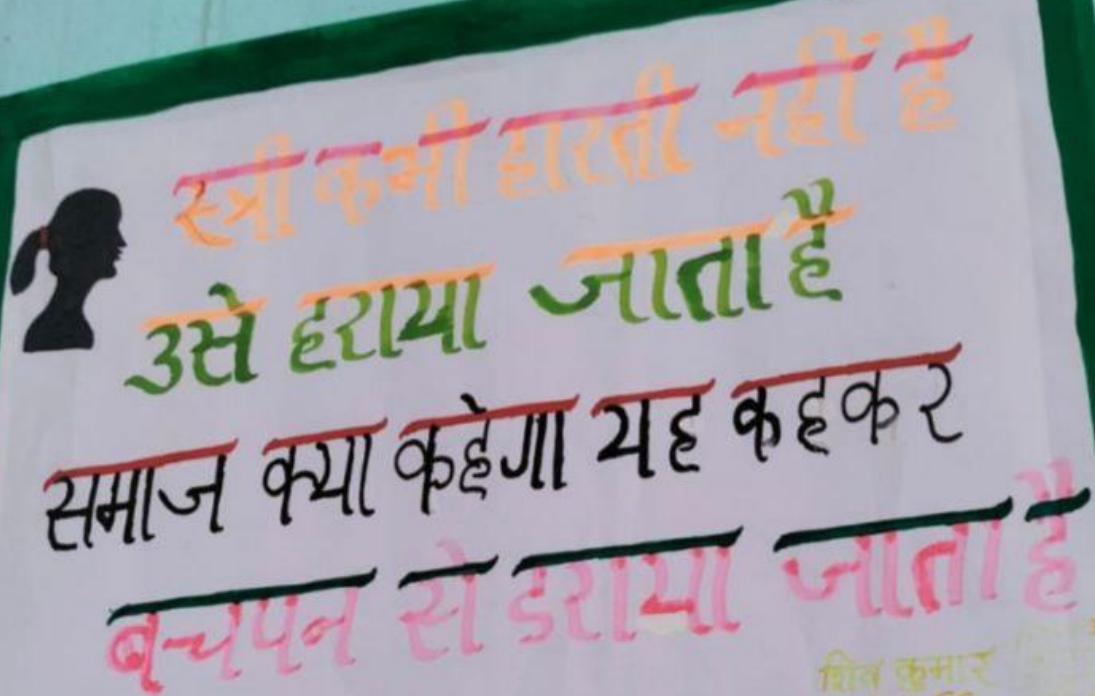 स्त्री कभी हारती नहीं है
उसे हराया जाता है
समाज क्या कहेगा यह कहकर
बचपन से डराया जाता है
शिव कुमार